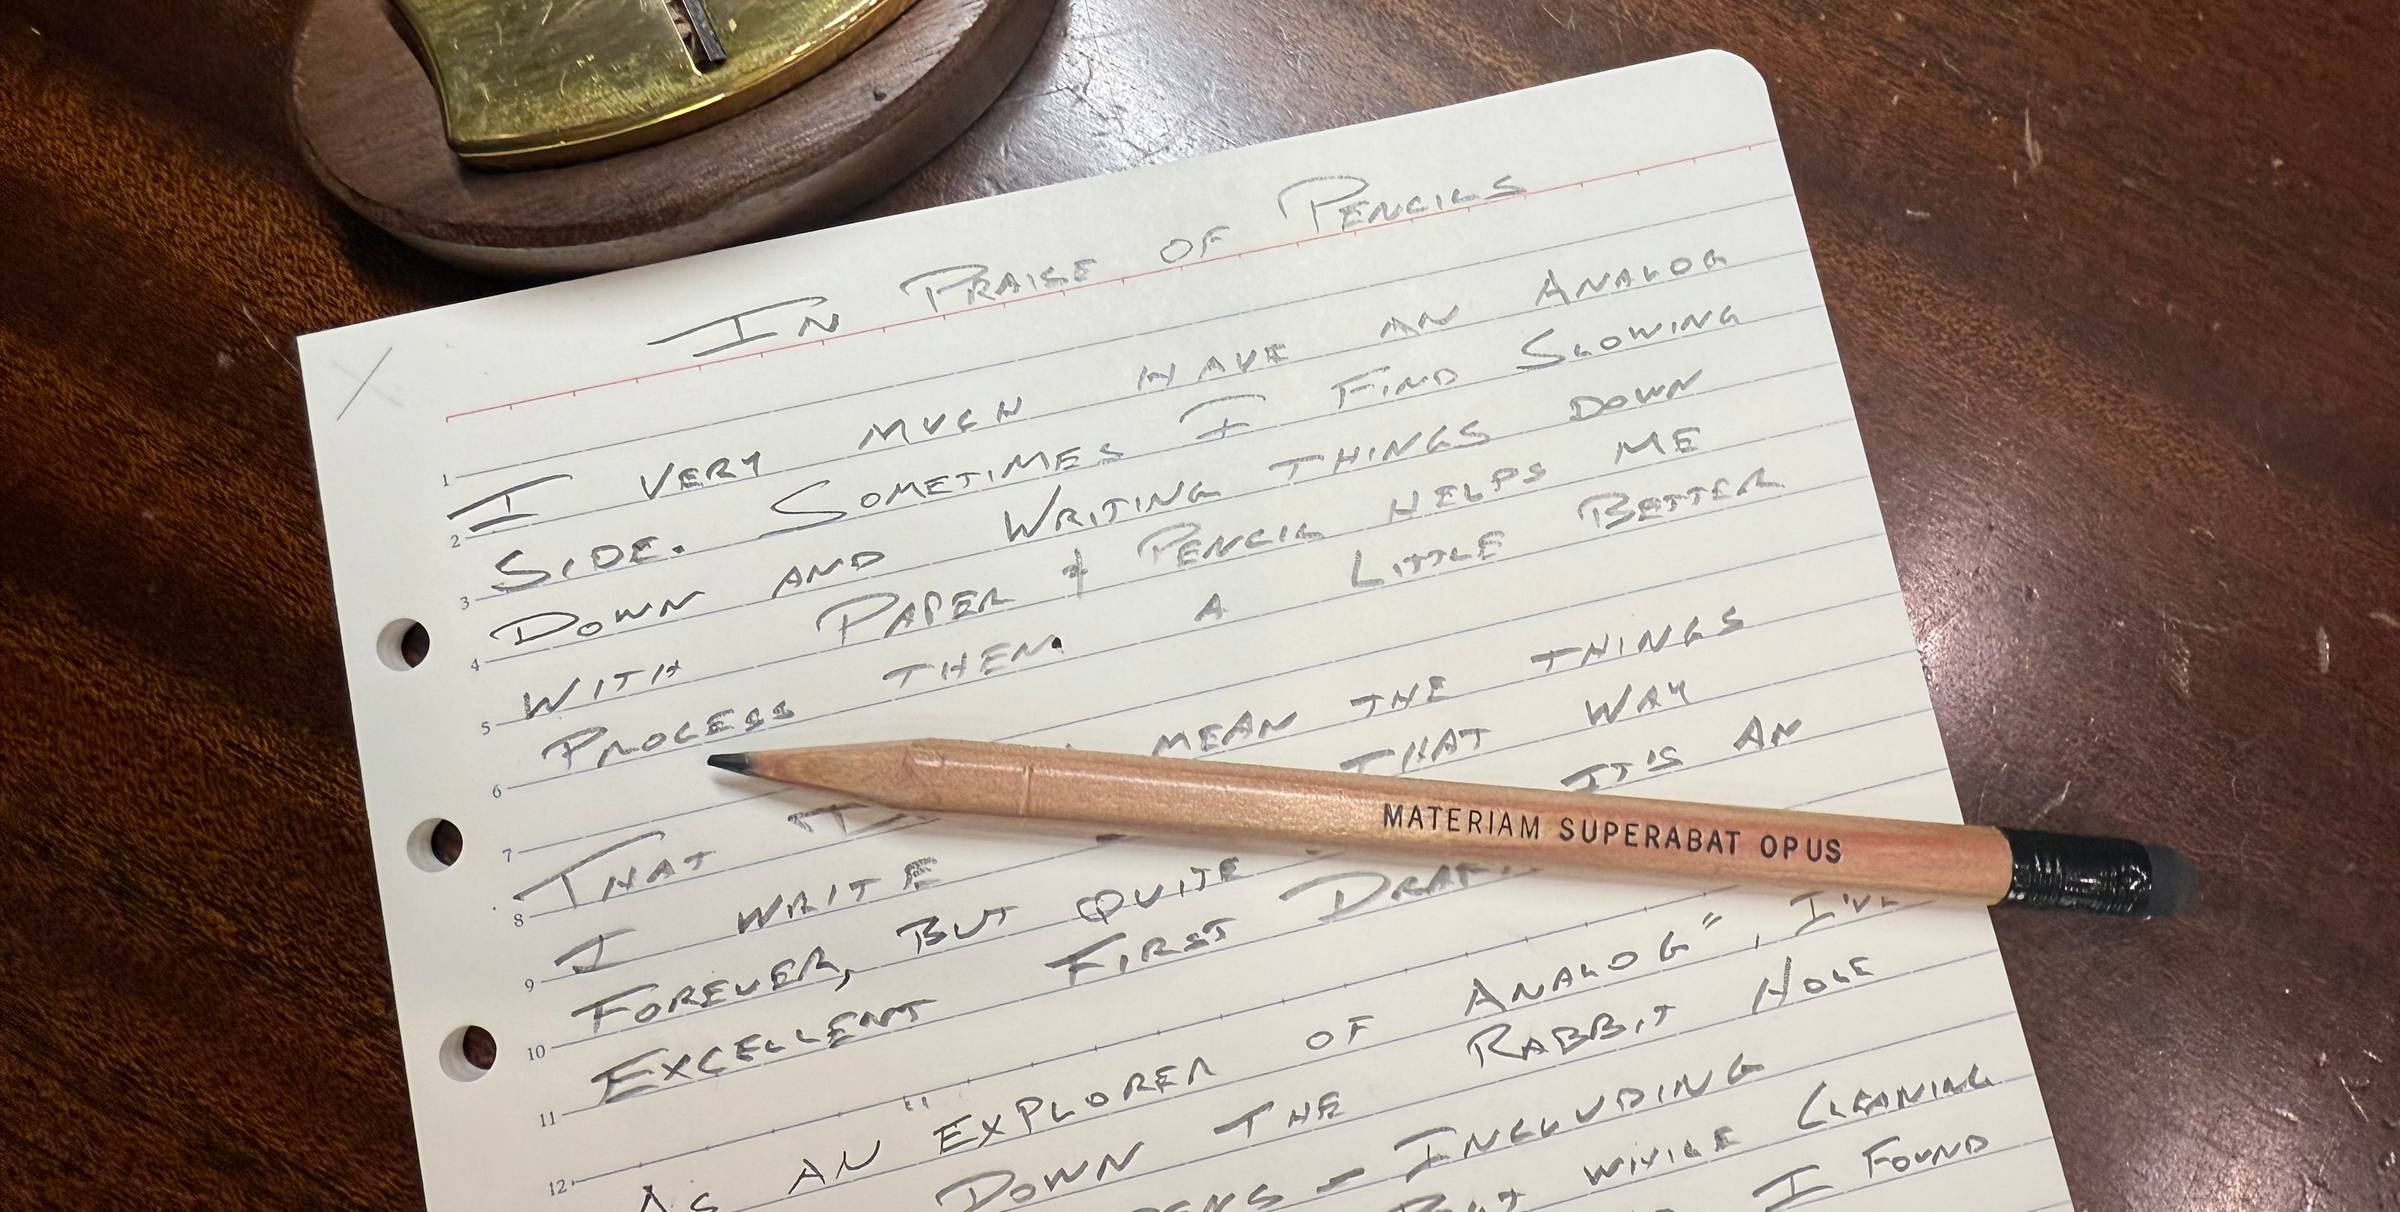 In Praise of Pencils
1
I very much have an Analog
2
Side. Sometimes I find Slowing
3
Down and Writing things Down
4
With Paper & Pencil helps me
5
Process them. a Little Better
6
7
That I mean the things
8
I write that way
9
Forever, But quite It's an
10
Excellent First Draft
11
12
As an "explorer of Analog", I've
Down the Rabbit Hole
pens - Including
But while Cleaning
I Found
MATERIAM SUPERABAT OPUS